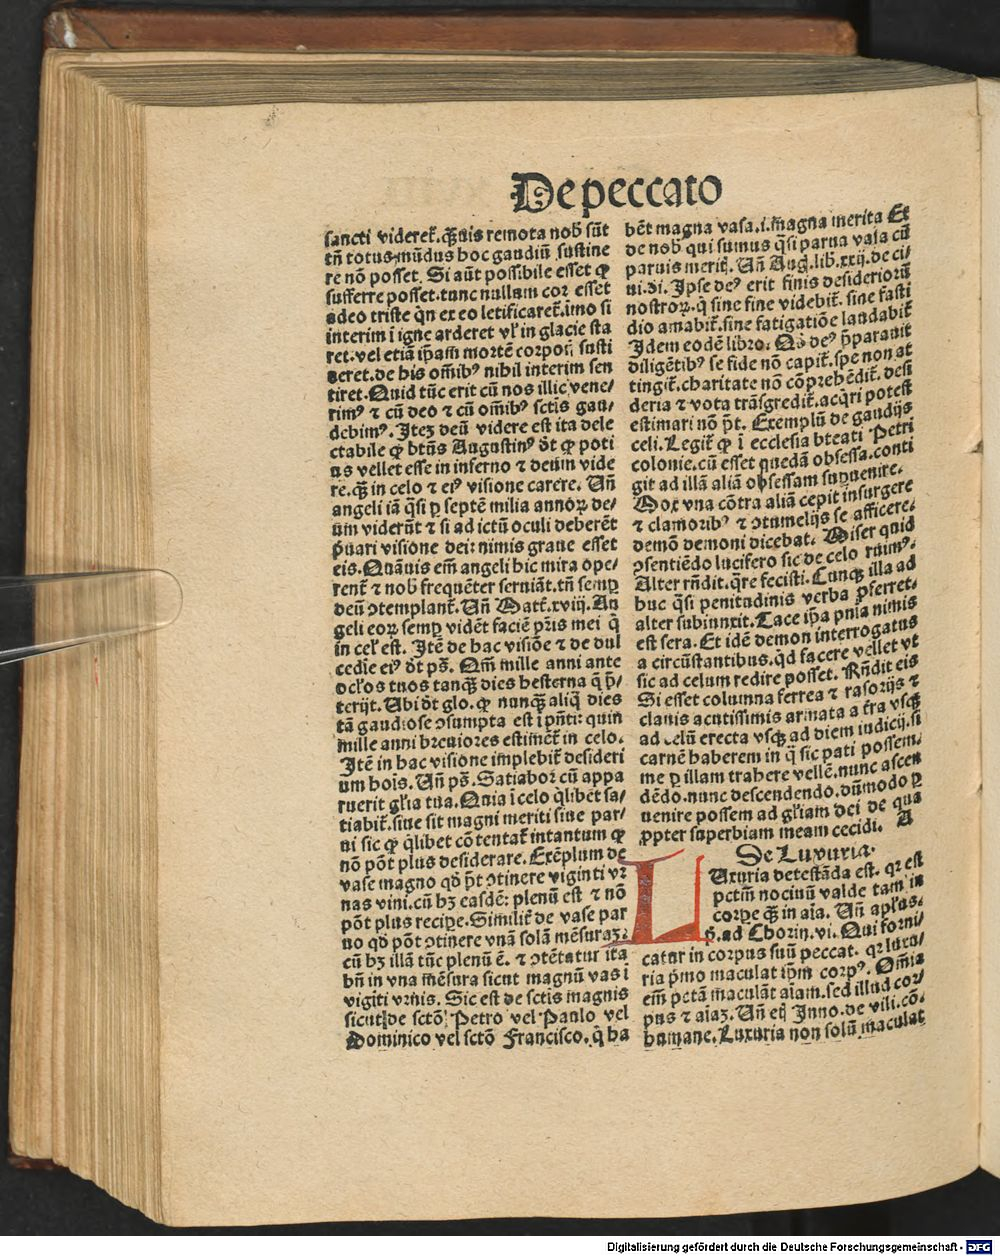 De peccato
sancti videret̄. q̄ꝫuis remota nob̄ sūt
tn̄ totus mūdus hoc gaudiū sustine
re nō posset. Si aūt possibile esset ꝙ
sufferre posset. tunc nullum cor esset
adeo triste qͥn ex eo letificaret̄. īmo si
interim ī igne arderet vl̓ in glacie sta
ret. vel etiā ip̄am mortē corporꝭ susti
neret. de his om̄ibꝰ nihil interim sen
tiret. Quid tūc erit cū nos illic vene/
rimꝰ ⁊ cū deo ⁊ cū om̄ibꝰ sctīs gau/
debimꝰ. Iteꝫ deū videre est ita dele
ctabile ꝙ btūs Augustinꝰ dt̄ ꝙ poti
us vellet esse in inferno ⁊ deum vide
re. q̄ꝫ in celo ⁊ eiꝰ visione carere. Un̄
angeli iā q̄si ꝑ septē milia annoꝝ de/
um viderūt ⁊ si ad ictū oculi deberēt
p̄uari visione dei: nimis graue esset
eis. Quāuis em̄ angeli hic mira ope/
rent̄ ⁊ nob̄ frequēter seruiāt. tn̄ semꝑ
deū ꝯtemplant̄. Un̄ Matt̄. xviij. An
geli eoꝝ semꝑ vidēt faciē pr̄is mei q̄
in cel̓ est. Itē de hac visiōe ⁊ de dul
cedīe eiꝰ dt̄ ps̄. Qm̄ mille anni ante
ocl̓os tuos tanq̄ꝫ dies hesterna q̄ p̄/
terijt. Ubi dt̄ glo. ꝙ nunq̄ꝫ aliq̄ dies
tā gaudiose ꝯsumpta est ī pn̄ti: quin
mille anni breuiores estimēt̄ in celo.
Itē in hac visione implebit̄ desideri
um hoīs. Un̄ ps̄. Satiabor cū appa
ruerit gl̓ia tua. Quia ī celo qͥlibet sa/
tiabit̄. siue sit magni meriti siue par/
ui sic ꝙ qͥlibet cōtentat̄ intantum ꝙ
nō pōt plus desiderare. Exēplum de
vase magno qd̄ pt̄ ꝯtinere viginti vr
nas vini. cū hꝫ easdē: plenū est ⁊ nō
pōt plus recipe. Similit̄ de vase par
uo qd̄ pōt ꝯtinere vnā solā mēsuraꝫ.
cū hꝫ illā tūc plenū ē. ⁊ ꝯtētatur ita
bn̄ in vna mēsura sicut magnū vas ī
vigīti vrnis. Sic est de sctīs magnis
sicut de sctō Petro vel Paulo vel
Dominico vel sctō Francisco. qͥ ha
bēt magna vasa. i. magna merita Et
de nob̄ qui sumus q̄si parua vasa cū
paruis meritꝭ. Un̄ Aug̓. lib. xxij. de ci/
ui. di. Ipse deꝰ erit finis desideriorū
nostroꝝ. qͥ sine fine videbit̄. sine fasti
dio amabit̄. sine fatigatiōe laudabit̄
Idem eodē libro. Qd̓ deꝰ p̄parauit
diligētibꝰ se fide nō capit̄. spe non at
tingit̄. charitate nō cōprehēdit̄. desi
deria ⁊ vota trāsgredit̄. acqͥri potest
estimari nō pt̄. Exemplū de gaudijs
celi. Legit̄ ꝙ ī ecclesia bteati Petri
colonie. cū esset quedā obsessa. conti
git ad illā aliā obsessam suꝑuenire.
Mox vna cōtra aliā cepit insurgere
⁊ clamoribꝰ ⁊ ꝯtumelijs se afficere.
demō demoni dicebat. Miser quid
ꝯsentiēdo lucifero sic de celo ruimꝰ.
Alter rn̄dit. q̄re fecisti. Cunqꝫ illa ad
huc q̄si penitudinis verba ꝓferret/
alter subinnxit. Tace ip̄a pn̄ia nimis
est sera. Et idē demon interrogatus
a circūstantibus. qͥd facere vellet vt
sic ad celum redire posset. Rn̄dit eis
Si esset columna ferrea ⁊ rasorijs ⁊
clauis acutissimis armata a t̄ra vsqꝫ
ad celū erecta vsqꝫ ad diem iudicij. si
carnē haberem in q̄ sic pati possem.
me ꝑ illam trahere vellē. nunc ascen
dēdo. nunc descendendo. dūmodo ꝑ
uenire possem ad gl̓iam dei de qua
ꝓpter superbiam meam cecidi. A
De Luxuria.
LUxuria detestāda est. qꝛ est
pctm̄ nociuū valde tam in
corpe q̄ꝫ in aīa. Un̄ apl̓us.
p̄. ad Chorin. vi. Qui forni/
catur in corpus suū peccat. qꝛ luxu/
ria p̄mo maculat ip̄m corpꝰ. Om̄ia
em̄ pctā maculāt aīam. sed illud cor/
pus ⁊ aīaꝫ. Un̄ etꝭ Inno. de vili. cō.
humane. Luxuria non solū maculat
Digitalisierung gefördert durch die Deutsche Forschungsgemeinschaft - DFG